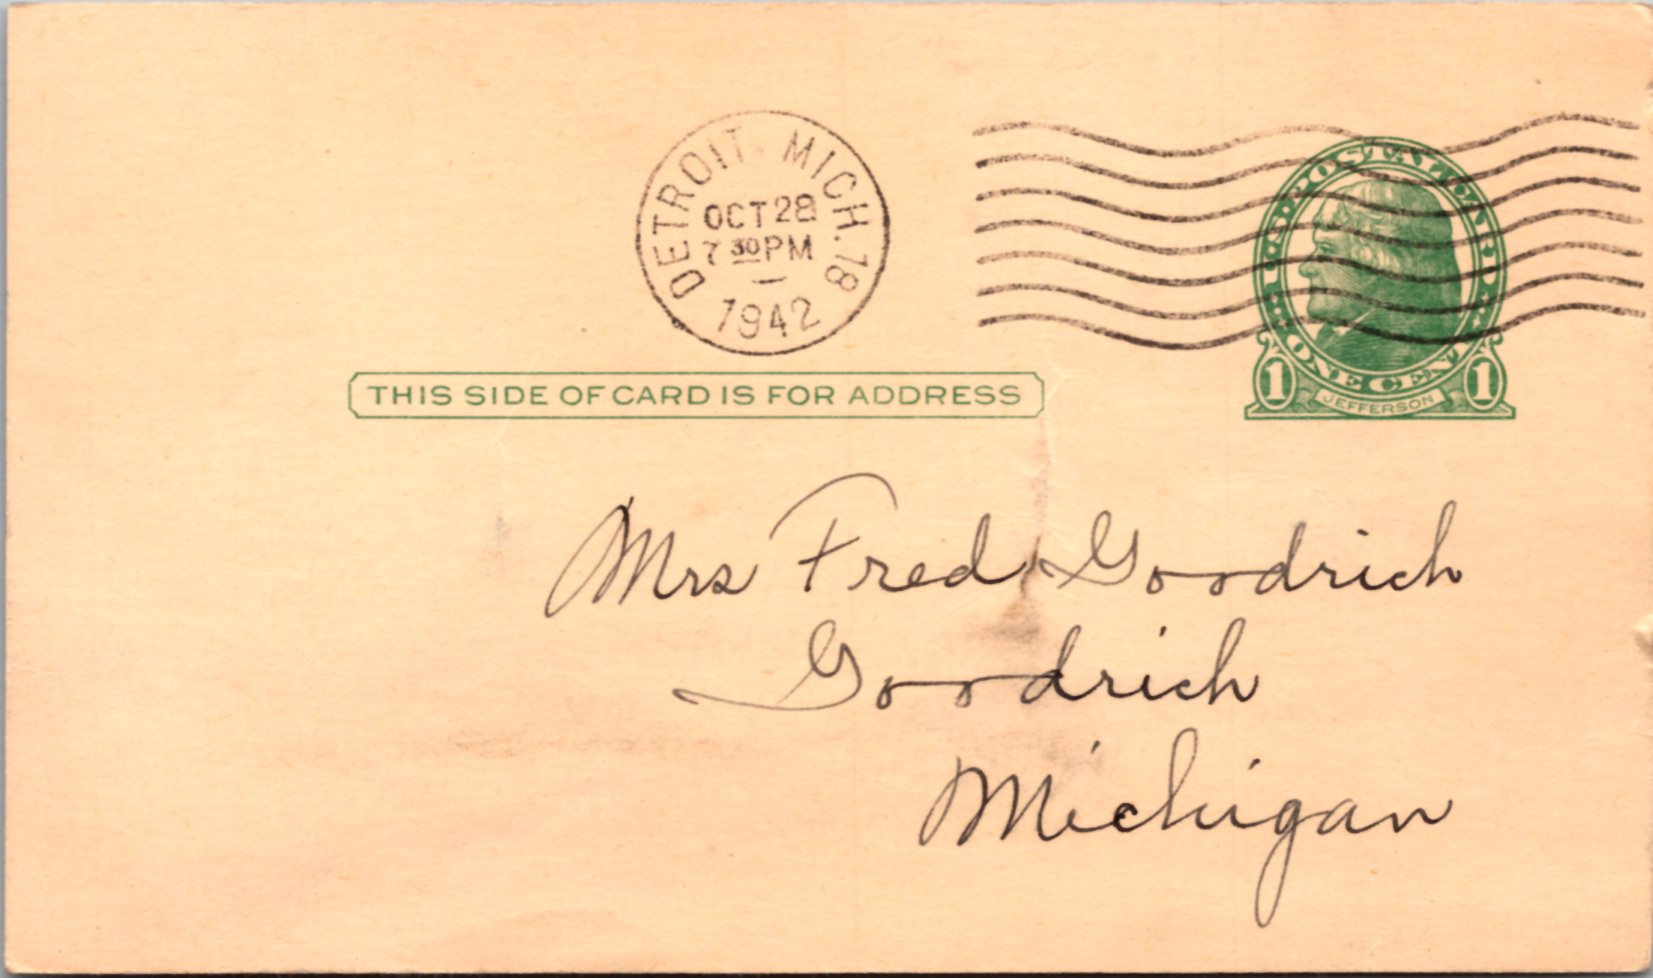 DETROIT, MICH. 18
OCT 28
7 30 PM
1942
U.S. POSTAL CARD
ONE CENT
1 JEFFERSON 1
THIS SIDE OF CARD IS FOR ADDRESS
Mrs Fred Goodrich
Goodrich
Michigan